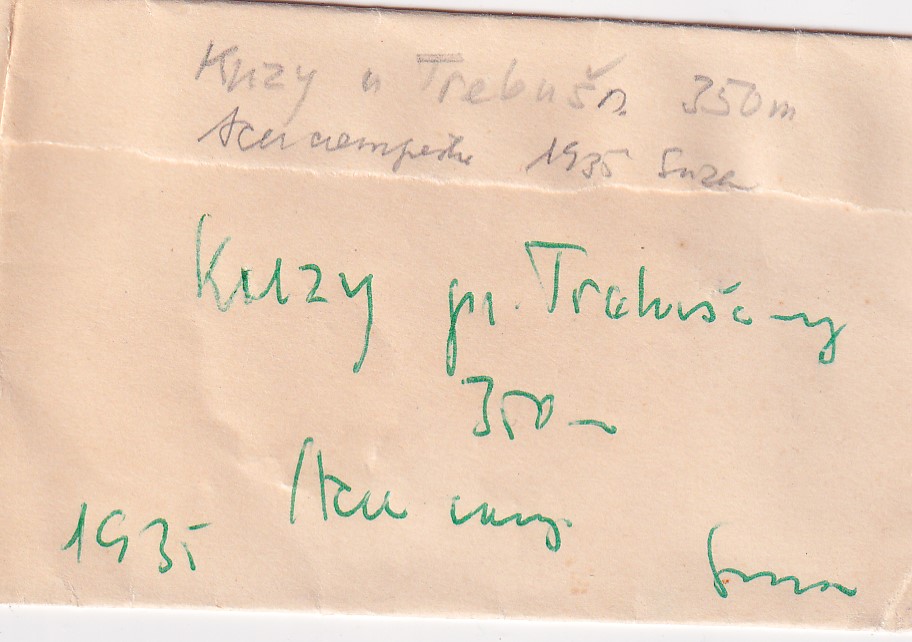 Kuzy u Trebuš. 350m
Acer campestre 1935 Suza
Kuzy pr. Trebušany
350 m
Acer camp
1935 Suza